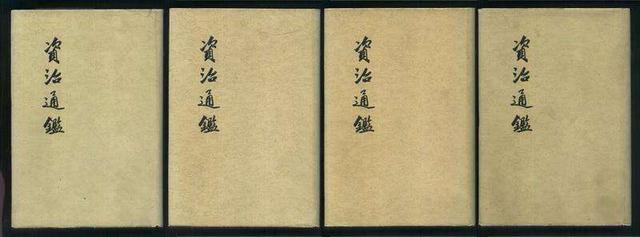 資治通鑑
資治通鑑
資治通鑑
資治通鑑